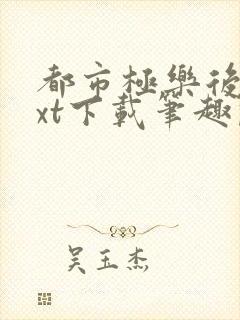 都市極樂後
xt下載筆趣
吴玉杰